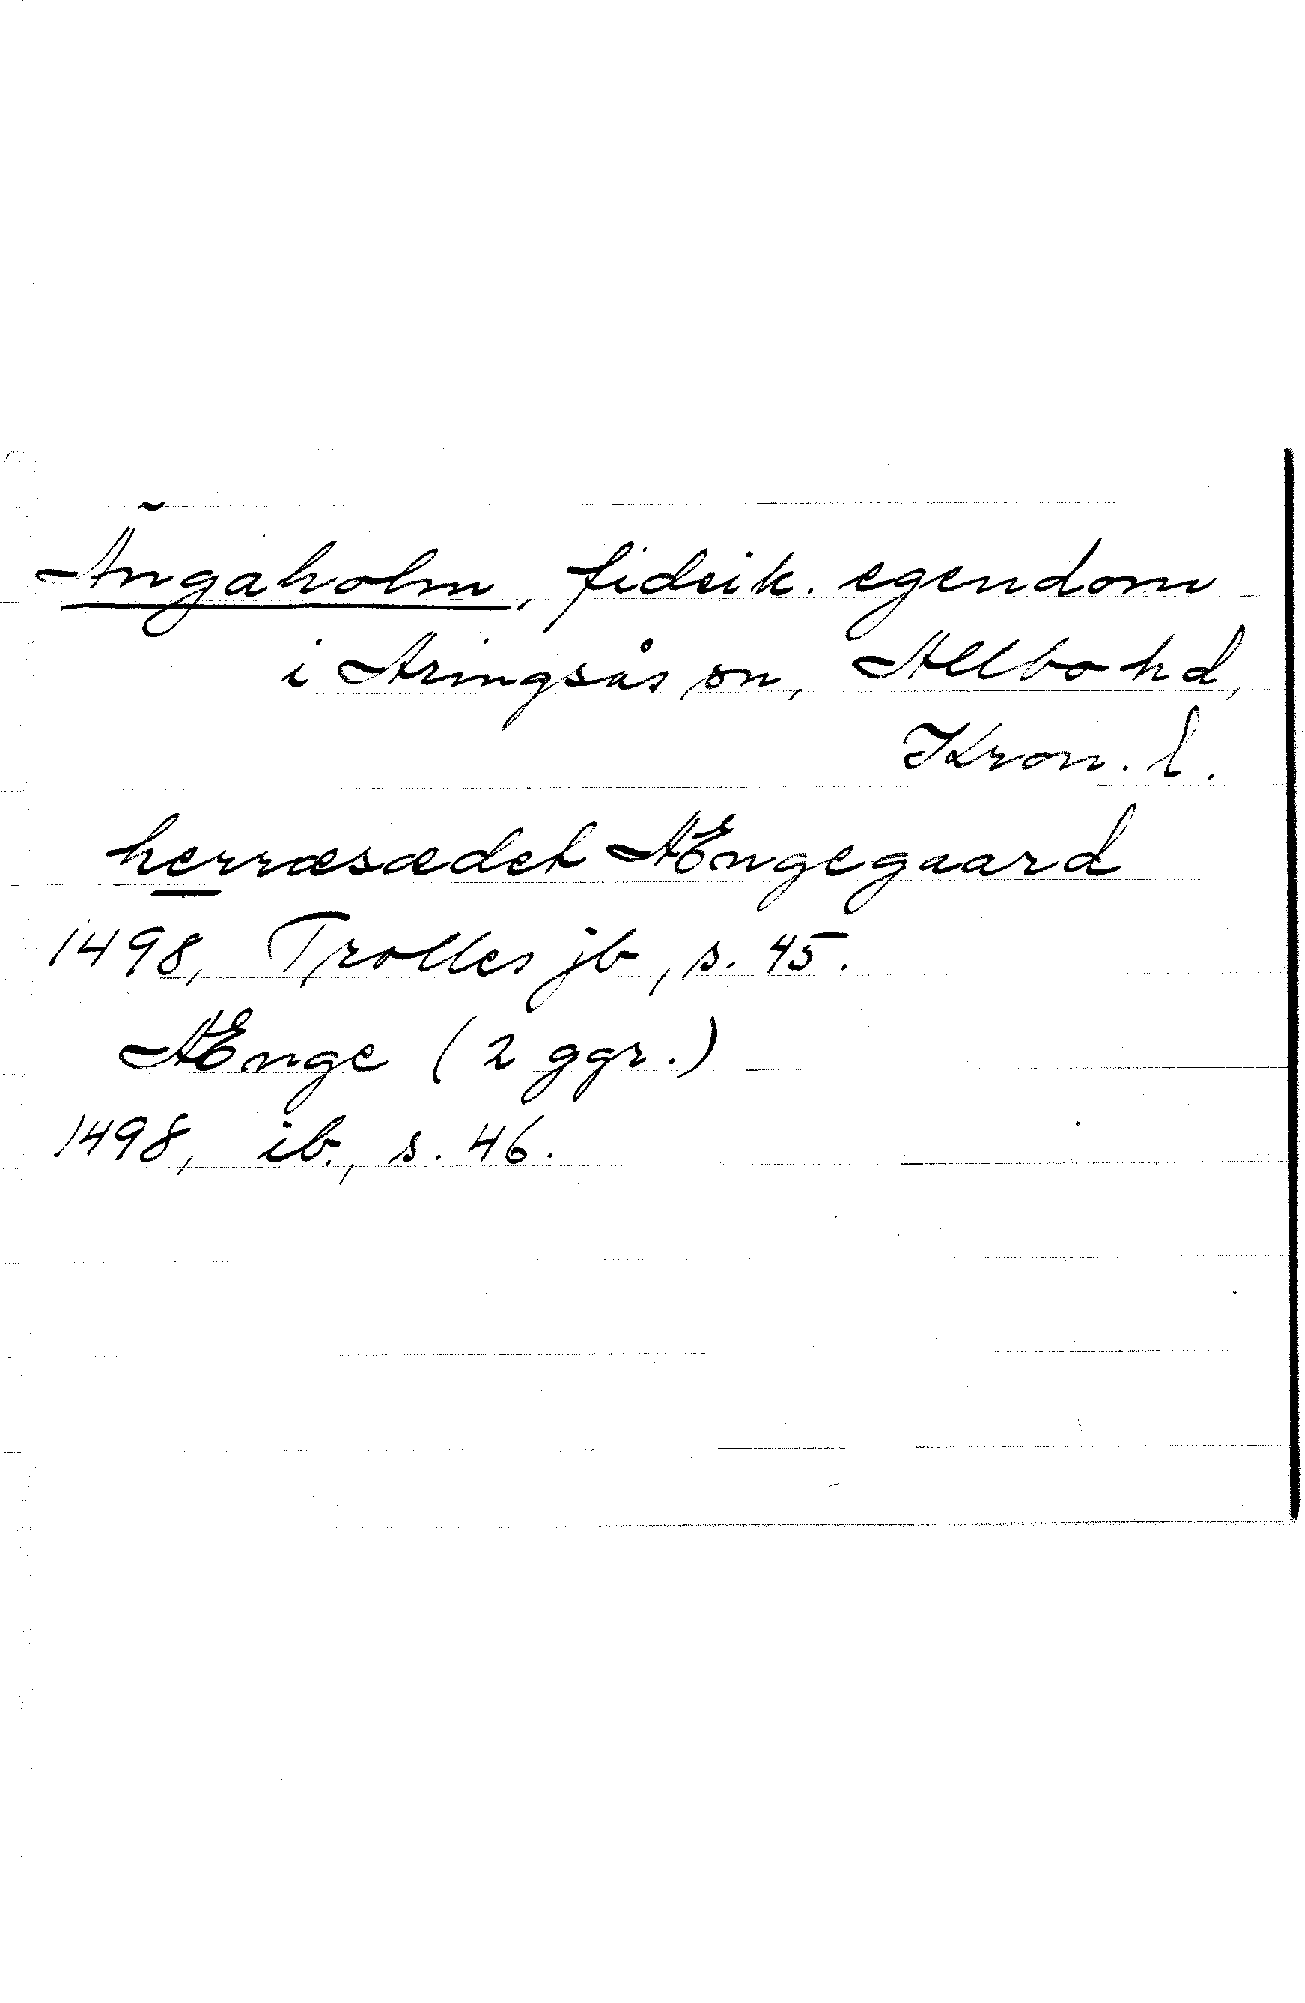 Ängaholm, fideik. egendom
i Aringsås sn, Allbo hd,
Kron. l.
herræsædet Ængegaard
1498, Trolles jb, s. 45.
Ænge (2 ggr.)
1498, ib., s. 46.